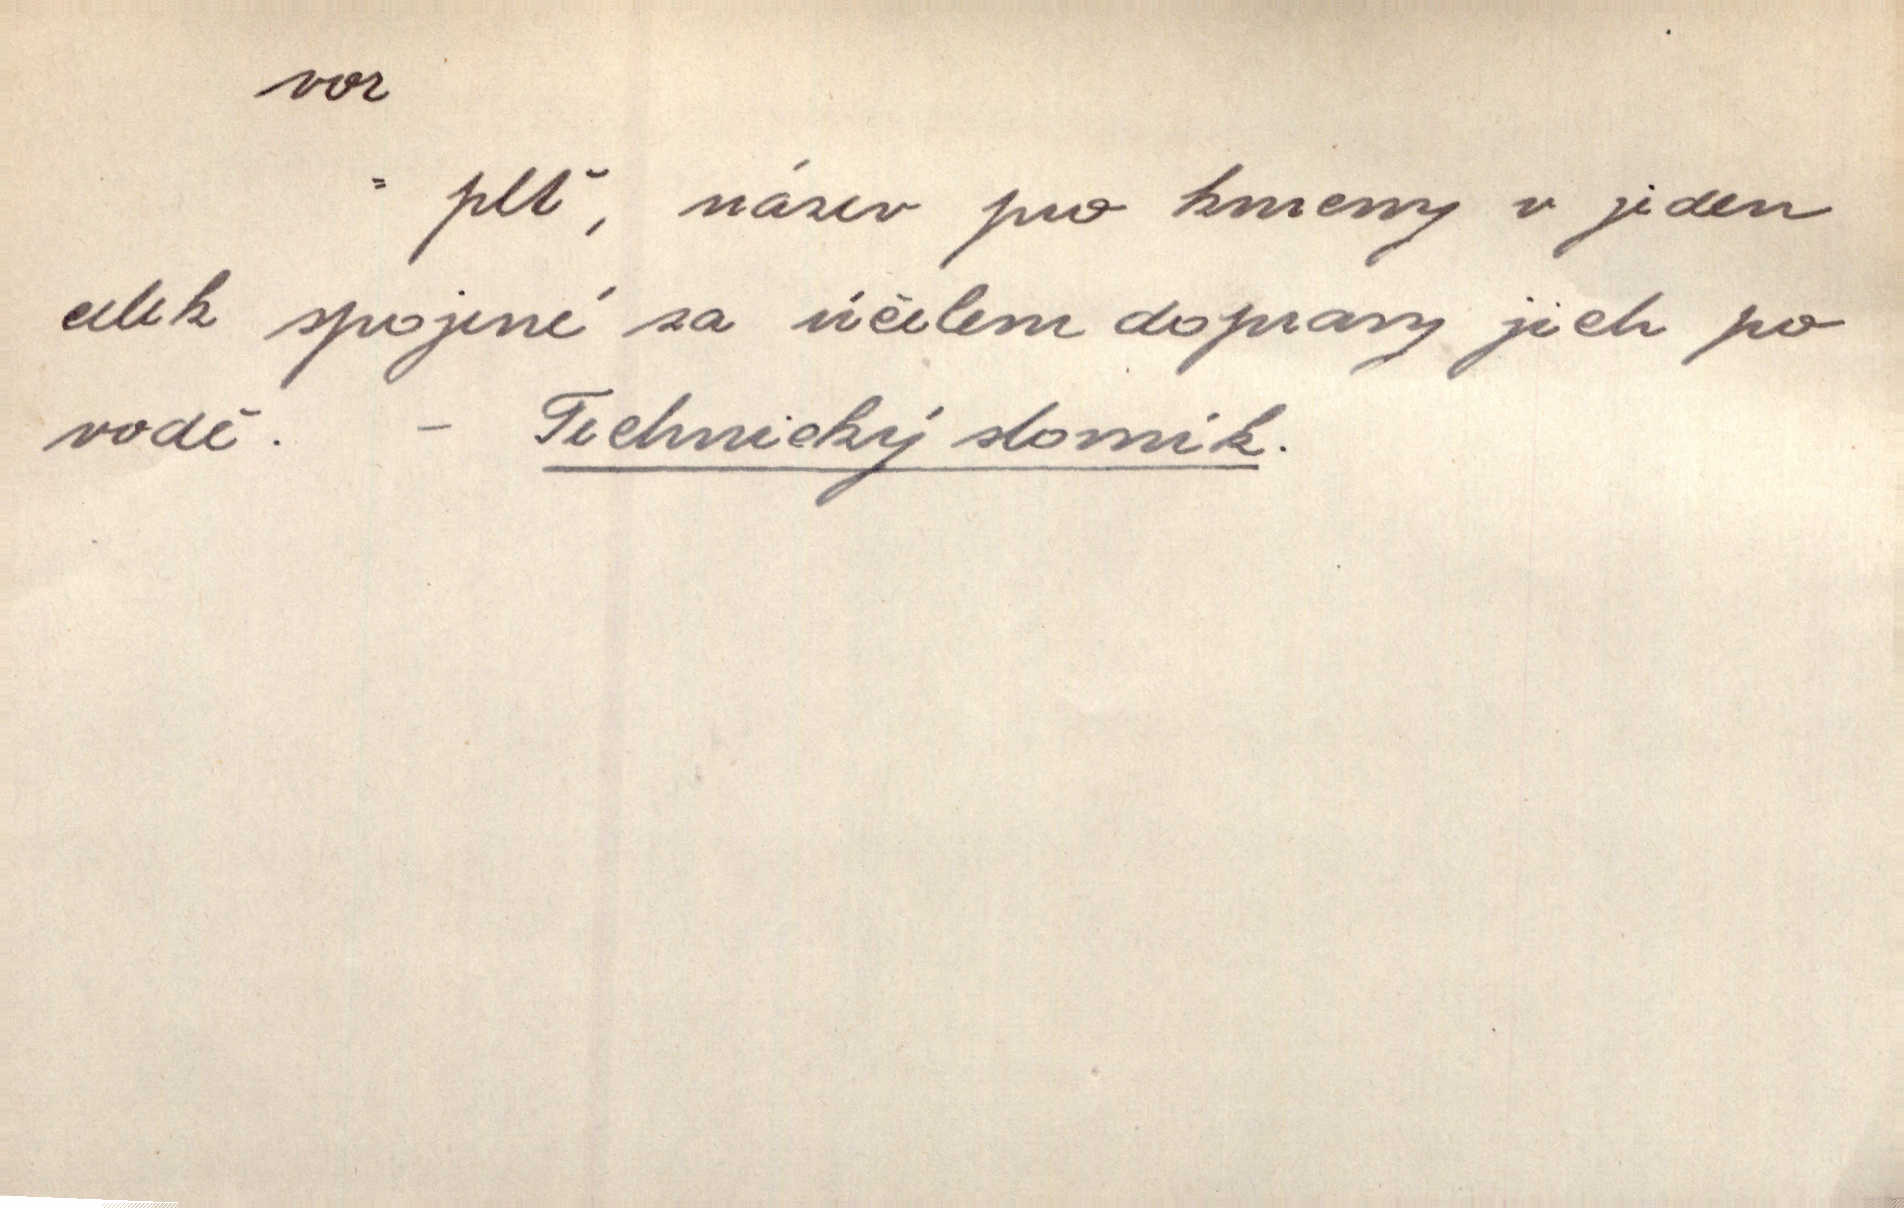 vor
= plť, název pro kmeny v jeden
celek spojené za účelem dopravy jich po
vodě. - Technický slovník.